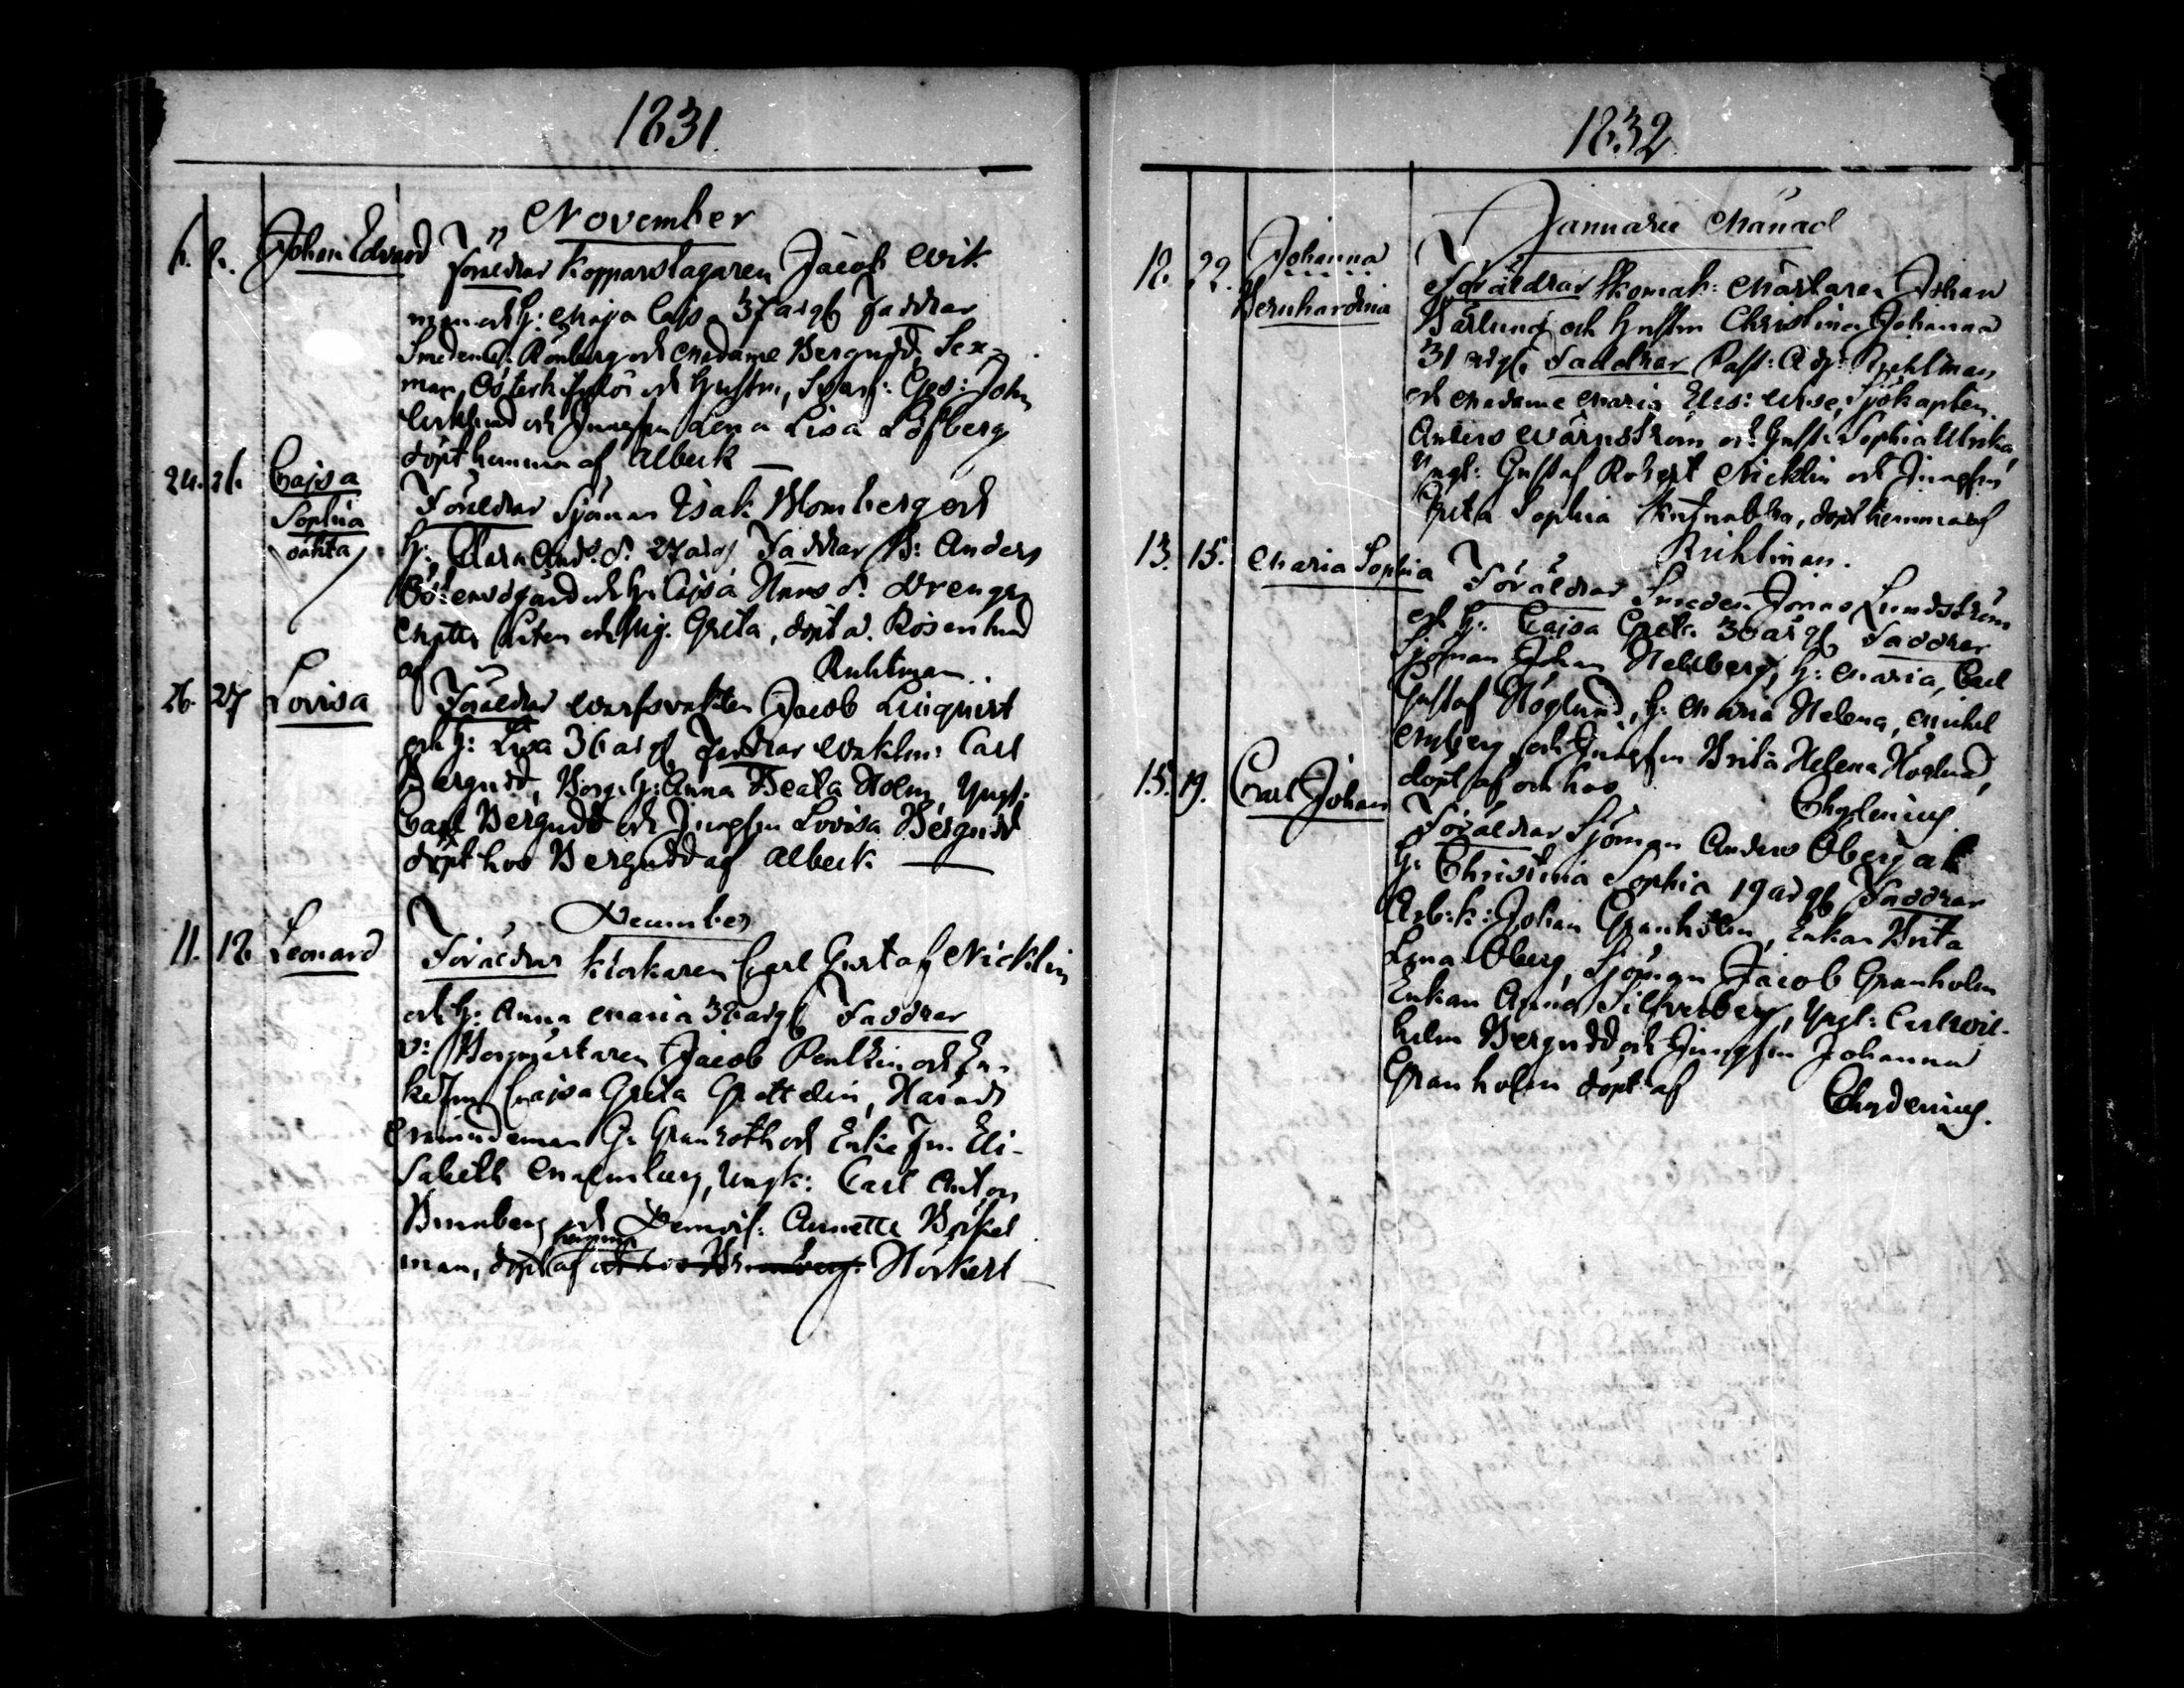 1831.
November
6. 8. Johan Edvard Föräldrar Kopparslagaren Jacob Wik-
man och h: Maja Cajsa 37 år gl Faddrar
Smeden Rönberg och Madame Bergudd, Sex-
man Österh och Hustru, Svarf: Ges: John
och Jungfrun Lena Lisa Löfberg
döpt hemma af Albeck
24. 26. Cajsa Sophia oäkta Föräldrar Sjöman Isak Blomberg och
h: Clara And: d. 27 år gl Faddrar B: Anders
och h: Cajsa Hans d. Drengen
Matts och Pig. Greta, döpt a. Rosenlund
af Ruhlman.
26. 27 Lovisa Föräldrar Warfsvakten Jacob Linqvist
och h: Lisa 36 år gl Faddrar Waktm: Carl
Bergudd, Borg. h: Anna Beata Holm, Yngl:
Carl Bergudd och Jungfrun Lovisa Bergudd
döpt hos Bergudd af Albeck
December
11. 18 Leonard Föräldrar Klockaren Carl Gustaf Nicklin
och h: Anna Maria 38 år gl Faddrar
v: Borgmästaren Jacob Penlkin och En-
kefru Cajsa Greta Grettelin, Härads
Granroth och Enke Fru Eli-
sabeth Malmberg, Ungk: Carl Anton
Brunberg och Demois: Annette Böckel
man, döpt af hemma Hörkert
1832
Januarii Månad
12. 22. Johanna Bernhardina Föräldrar Skomak: Mästaren Johan
Bärlund och Hustrun Christina Johanna
31 år gl, Faddrar Past: Adj: Ruhlman
och Madame Maria Elis: Wise, Sjökapten
Anders Wärnström och Hust: Sophia Ulrika,
Yngl: Gustaf Robert Nicklin och Jungfrun
Greta Sophia, döpt hemma af
Ruhlman.
13. 15. Maria Sophia Föräldrar Smeden Jonas Lundström
och h: Cajsa Greta 30 år gl Faddrar
Sjöman Johan Hellberg, h: Maria, Carl
Gustaf Höglund, h: Maria Helena, Michel
Myberg och Jungfrun Brita Helena Höglund,
döpt af och hos Chydenius.
15. 19. Carl Johan Föräldrar Sjöman Anders Öberg och
h: Christina Sophia 19 år gl Faddrar
Arb:k: Johan Granholm, Enkan Brita
Lena Öberg, Sjöman Jacob Granholm
Enkan Anna Silfverberg, Yngl: Carl Wil-
helm Bergudd och Jungfrun Johanna
Granholm döpt af Chydenius.